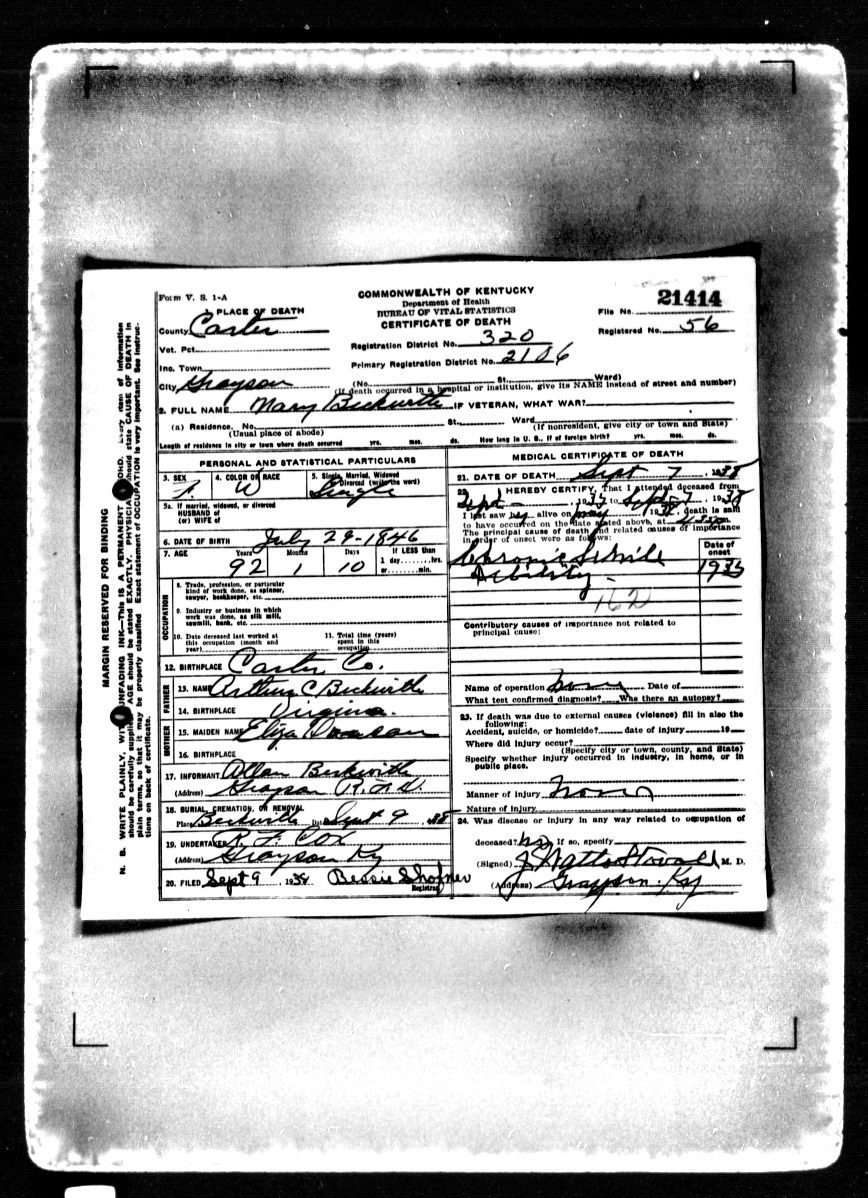 Form V. S. 1-A
COMMONWEALTH OF KENTUCKY
Department of Health
BUREAU OF VITAL STATISTICS
CERTIFICATE OF DEATH
File No. 21414
Registered No. 56
PLACE OF DEATH
County Carter
Vot. Pct.
Inc. Town
City Grayson
Registration District No. 320
Primary Registration District No. 2106
(No. St. Ward)
(If death occurred in a hospital or institution, give its NAME instead of street and number)
2. FULL NAME Mary Beckwith IF VETERAN, WHAT WAR?
(a) Residence. No. St. Ward
(Usual place of abode) (If nonresident, give city or town and State)
Length of residence in city or town where death occurred yrs. mos. ds. How long in U. S., if of foreign birth? yrs. mos. ds.
PERSONAL AND STATISTICAL PARTICULARS
3. SEX F. 4. COLOR OR RACE W 5. Single, Married, Widowed
Divorced (write the word) Single
5a. If married, widowed, or divorced
HUSBAND of
(or) WIFE of
6. DATE OF BIRTH July 29-1846
7. AGE Years Months Days If LESS than
92 1 10 1 day hrs.
or min.
OCCUPATION
8. Trade, profession, or particular
kind of work done, as spinner,
sawyer, bookkeeper, etc.
9. Industry or business in which
work was done, as silk mill,
sawmill, bank, etc.
10. Date deceased last worked at
this occupation (month and
year)
11. Total time (years)
spent in this
occupation
12. BIRTHPLACE Carter Co.
FATHER
13. NAME Arthur C Beckwith
14. BIRTHPLACE Virginia.
MOTHER
15. MAIDEN NAME Eliza
16. BIRTHPLACE
17. INFORMANT Allan Beckwith
(Address) Grayson R.F.D.
18. BURIAL, CREMATION, OR REMOVAL
Place Beckwith Date Sept 9, 38
19. UNDERTAKER R. F. Cox
(Address) Grayson Ky
20. FILED Sept 9 1938 Bessie Shofner
Registrar
MEDICAL CERTIFICATE OF DEATH
21. DATE OF DEATH Sept 7, 1938
22. I HEREBY CERTIFY, That I attended deceased from
Sept 1937 to Sept 7, 1938
I last saw her alive on May, 1938, death is said
to have occurred on the date stated above, at
The principal cause of death and related causes of importance
in order of onset were as follows:
Date of
onset
Chronic Senile
Debility- 1935
162
Contributory causes of importance not related to
principal cause:
Name of operation none Date of
What test confirmed diagnosis? Was there an autopsy?
23. If death was due to external causes (violence) fill in also the
following:
Accident, suicide, or homicide? date of injury 19
Where did injury occur?
(Specify city or town, county, and State)
Specify whether injury occurred in industry, in home, or in
public place.
Manner of injury None
Nature of injury
24. Was disease or injury in any way related to occupation of
deceased? no If so, specify
(Signed) J Watts Stovall M. D.
(Address) Grayson. Ky
MARGIN RESERVED FOR BINDING
N. B. WRITE PLAINLY, WITH UNFADING INK—This IS A PERMANENT RECORD. Every item of information
should be carefully supplied. AGE should be stated EXACTLY. PHYSICIANS should state CAUSE OF DEATH in
plain terms, so that it may be properly classified. Exact statement of OCCUPATION is very important. See instruc-
tions on back of certificate.